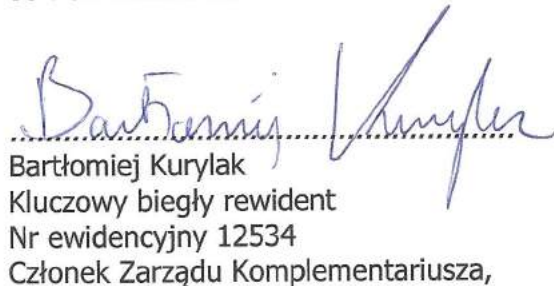 Bartłomiej Kurylak
Bartłomiej Kurylak
Kluczowy biegły rewident
Nr ewidencyjny 12534
Członek Zarządu Komplementariusza,